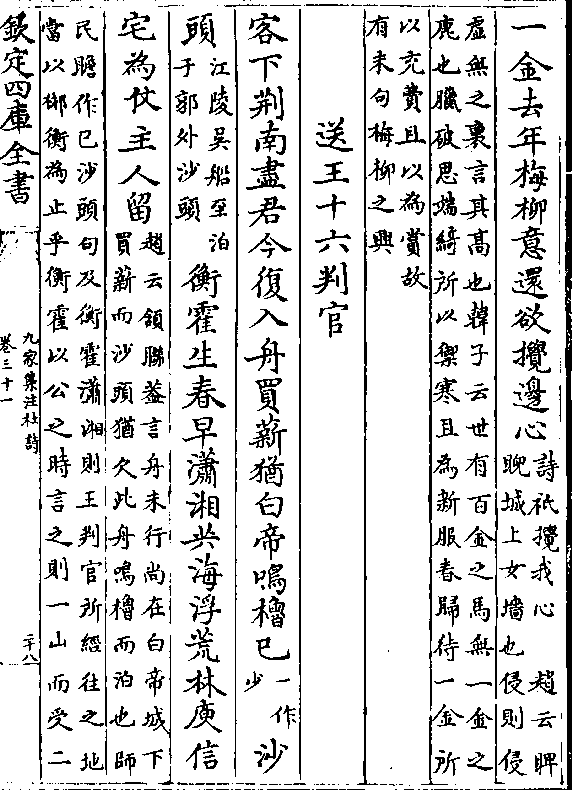 一金去年梅柳意還欲攪邊心
詩祇攪我心　趙云睥
睨城上女墻也　侵則侵
虛無之裏言其高也韓子云世有百金之馬無一金之
鹿也臘破思端綺所以禦寒且為新服春歸待一金所
以充費且以為賞故
有末句梅柳之興
送王十六判官
客下荆南盡君今復入舟買薪猶白帝鳴櫓已
一作
少
沙
頭
江陵吳船至泊
于郭外沙頭
衡霍生春早瀟湘共海浮荒林庾信
宅為仗主人留
趙云領聯蓋言舟未行尚在白帝城下
買薪而沙頭猶欠此舟鳴櫓而泊也師
民瞻作巳沙頭句及衡霍瀟湘則王判官所經往之地
當以郴衡為止乎衡霍以公之時言之則一山而受二
欽定四庫全書
九家集注杜詩
卷三十一
二十八